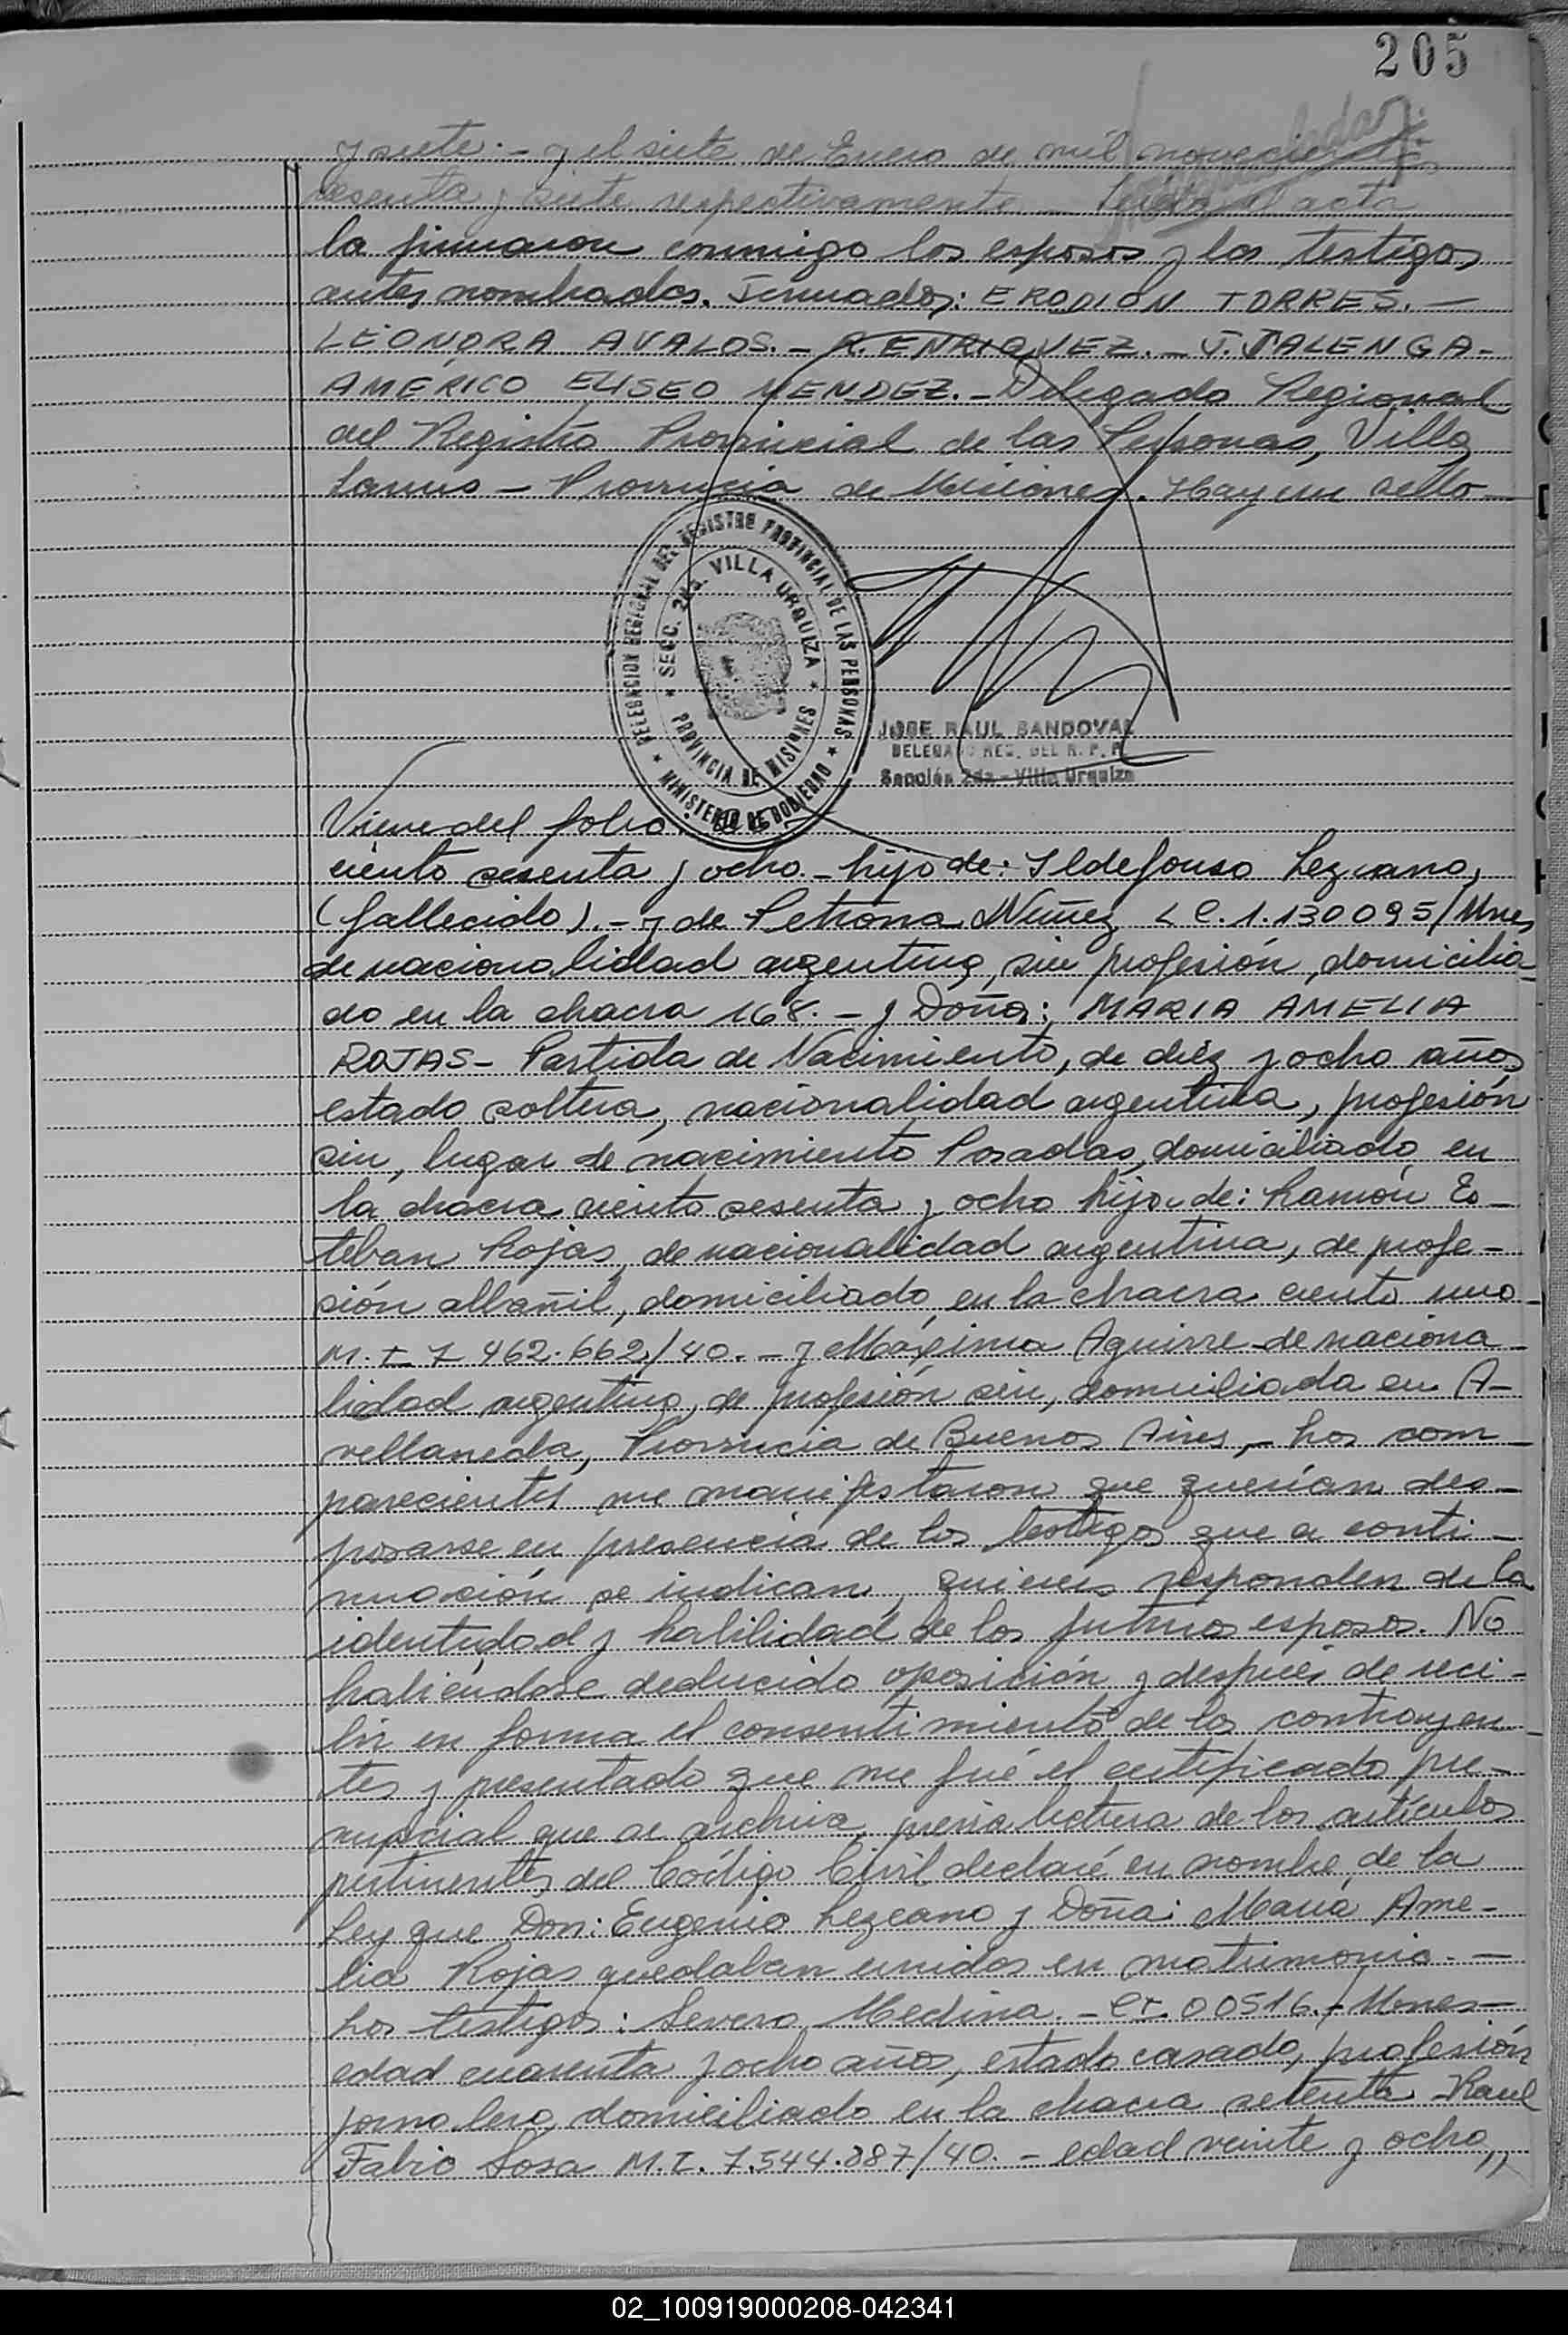 205
y siete.- y el siete de Enero de mil novecientos
sesenta y siete respectivamente - Leída el acta
la firmaron conmigo los esposos y los testigos
antes nombrados. Firmados: ERODION TORRES.-
LEONORA AVALOS.- R. ENRIQUEZ.- J. TALENGA-
AMÉRICO ELISEO MENDEZ.- Delegado Regional
del Registro Provincial de las Personas, Villa
Lanus - Provincia de Misiones. Hay un sello
DELEGACION REGIONAL DEL REGISTRO PROVINCIAL DE LAS PERSONAS
SECC. 2da. VILLA URQUIZA
PROVINCIA DE MISIONES
MINISTERIO DE GOBIERNO
JOSE RAUL SANDOVAL
DELEGADO REG. DEL R. P. P.
Sección 2da - Villa Urquiza
Viene del folio
ciento sesenta y ocho - hijo de: Ildefonso Lezcano,
(fallecido).- y de Petrona Nuñez L C. 1.130095/Mnes
de nacionalidad argentina, sin profesión, domicilia-
do en la chacra 168. - y Doña: MARIA AMELIA
ROJAS - Partida de Nacimiento, de diez y ocho años
estado soltera, nacionalidad argentina, profesión
sin, lugar de nacimiento Posadas, domiciliado en
la chacra ciento sesenta y ocho hija de: Ramón Es-
teban Rojas, de nacionalidad argentina, de profe-
sión albañil, domiciliado en la chacra ciento uno
M. I 7 462.662/40. - y Máxima Aguirre de naciona-
lidad argentina, de profesión sin, domiciliada en A-
vellaneda, Provincia de Buenos Aires, - Los com-
parecientes me manifestaron que querían des-
posarse en presencia de los testigos que a conti-
nuación se indican, quienes responden de la
identidad y habilidad de los futuros esposos. No
habiéndose deducido oposición y después de reci-
bir en forma el consentimiento de los contrayen-
tes y presentado que me fué el certificado pre-
nupcial que se archiva, previa lectura de los artículos
pertinentes del Código Civil declaré en nombre de la
Ley que Don: Eugenio Lezcano y Doña: María Ame-
lia Rojas quedaban unidos en matrimonio. -
Los testigos: Severo Medina. - CI. 00516. / Mnes-
edad cuarenta y ocho años, estado casado, profesión
jornalero domiciliado en la chacra setenta - Raul
Fabio Sosa M.I. 7.544.887/40. - edad veinte y ocho,,
02_100919000208-042341